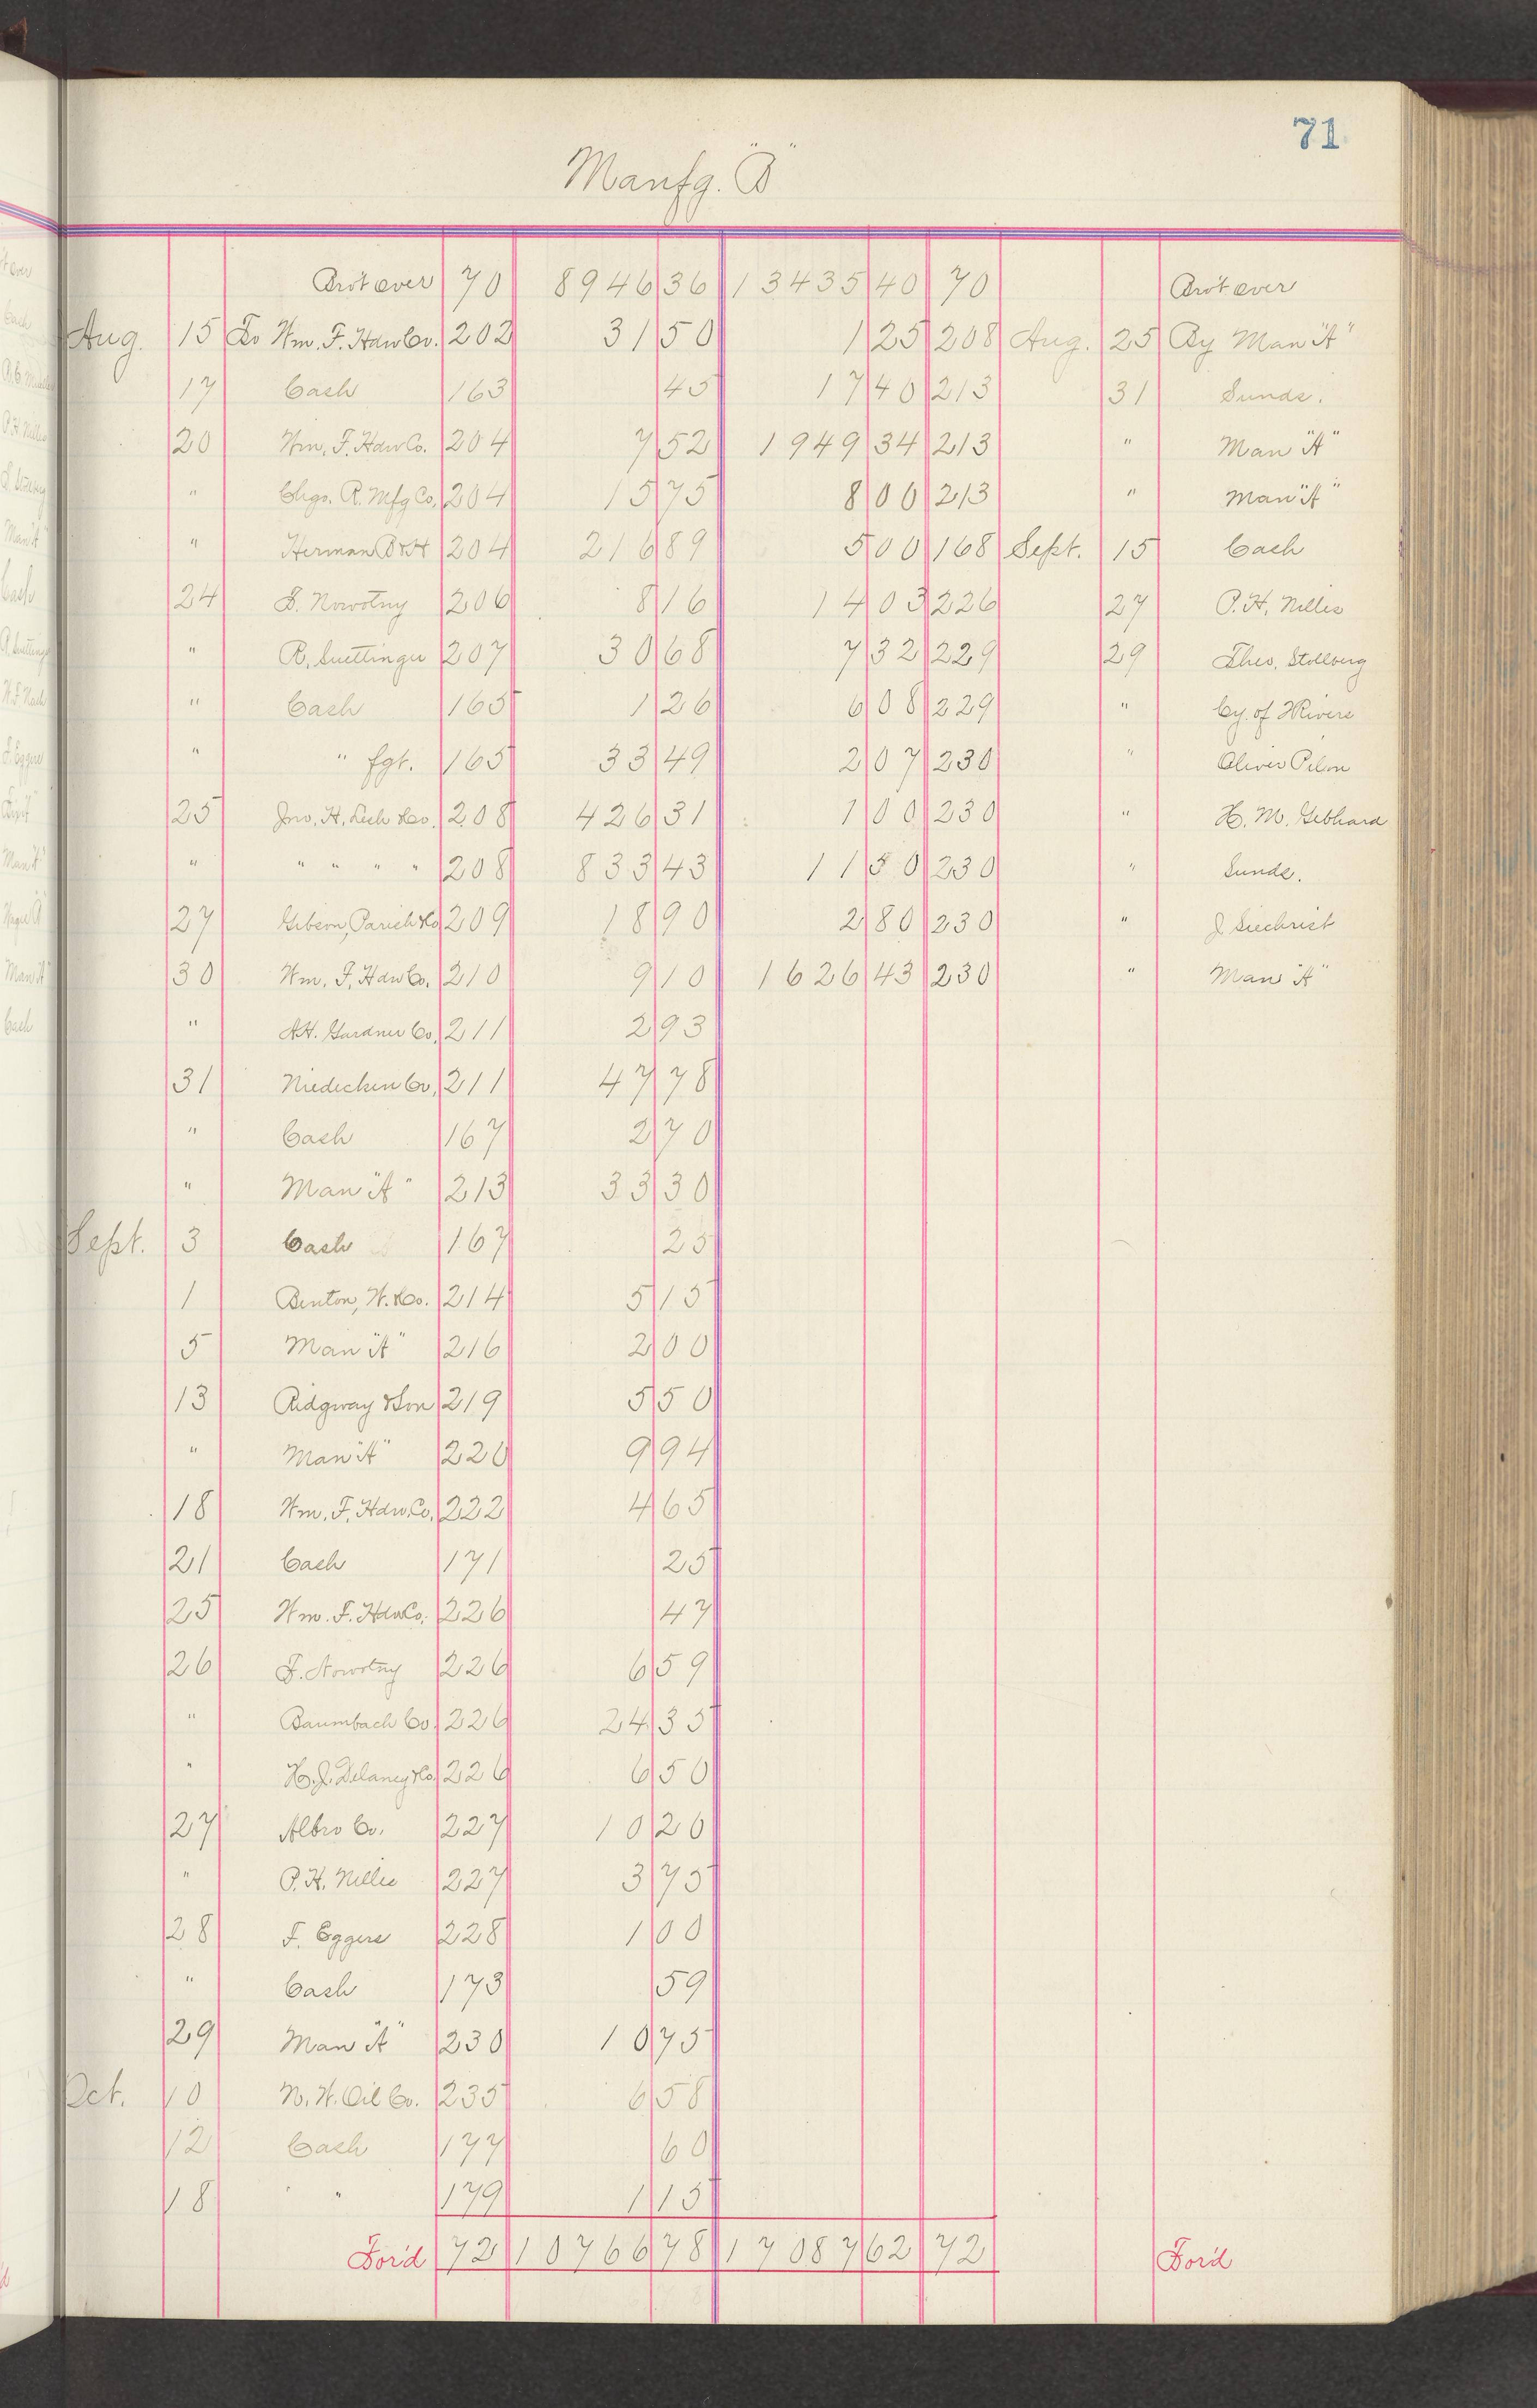 71
Manfg. "B"
Bro't over 70 8946 36 13435 40 70 Bro't over
Aug. 15 To Wm. F. Hdw Co. 202 31 50 1 25 208 Aug. 25 By Man "A"
17 Cash 163 45 17 40 213 31 Sunds.
20 Wm. F. Hdw Co. 204 7 52 1949 34 213 " Man "A"
" Chgo. R. Mfg Co. 204 15 75 8 00 213 " Man "A"
" Herman B & H 204 216 89 5 00 168 Sept. 15 Cash
24 F. Nowotny 206 8 16 14 03 226 27 P. H. Nilles
" R. Suettinger 207 30 68 7 32 229 29 Theo. Stollberg
" Cash 165 1 26 6 08 229 " Cy. of 2 Rivers
" " fgt. 165 33 49 2 07 230 " Oliver Pilon
25 Jno. H. Lesh & Co. 208 426 31 1 00 230 " H. M. Gebhard
" " " " " 208 833 43 11 50 230 " Sunds.
27 Gibson, Parish & Co 209 18 90 2 80 230 " J. Siechrist
30 Wm. F. Hdw Co. 210 9 10 1626 43 230 " Man "A"
" A. H. Gardner Co. 211 2 93
31 Niedecken Co. 211 47 78
" Cash 167 2 70
" Man "A" 213 33 30
Sept. 3 Cash 167 25
1 Benton, W. & Co. 214 5 15
5 Man "A" 216 2 00
13 Ridgway & Son 219 5 50
" Man "A" 220 9 94
18 Wm. F. Hdw. Co. 222 4 65
21 Cash 171 25
25 Wm. F. Hdw Co. 226 47
26 F. Nowotny 226 6 59
" Baumbach Co. 226 24 35
" H. J. Delaney & Co. 226 6 50
27 Albro Co. 227 10 20
" P. H. Nilles 227 3 75
28 F. Eggers 228 1 00
" Cash 173 59
29 Man "A" 230 10 75
Oct. 10 N. W. Oil Co. 235 6 58
12 Cash 177 60
18 " 179 1 15
For'd 72 10766 78 17087 62 72 For'd